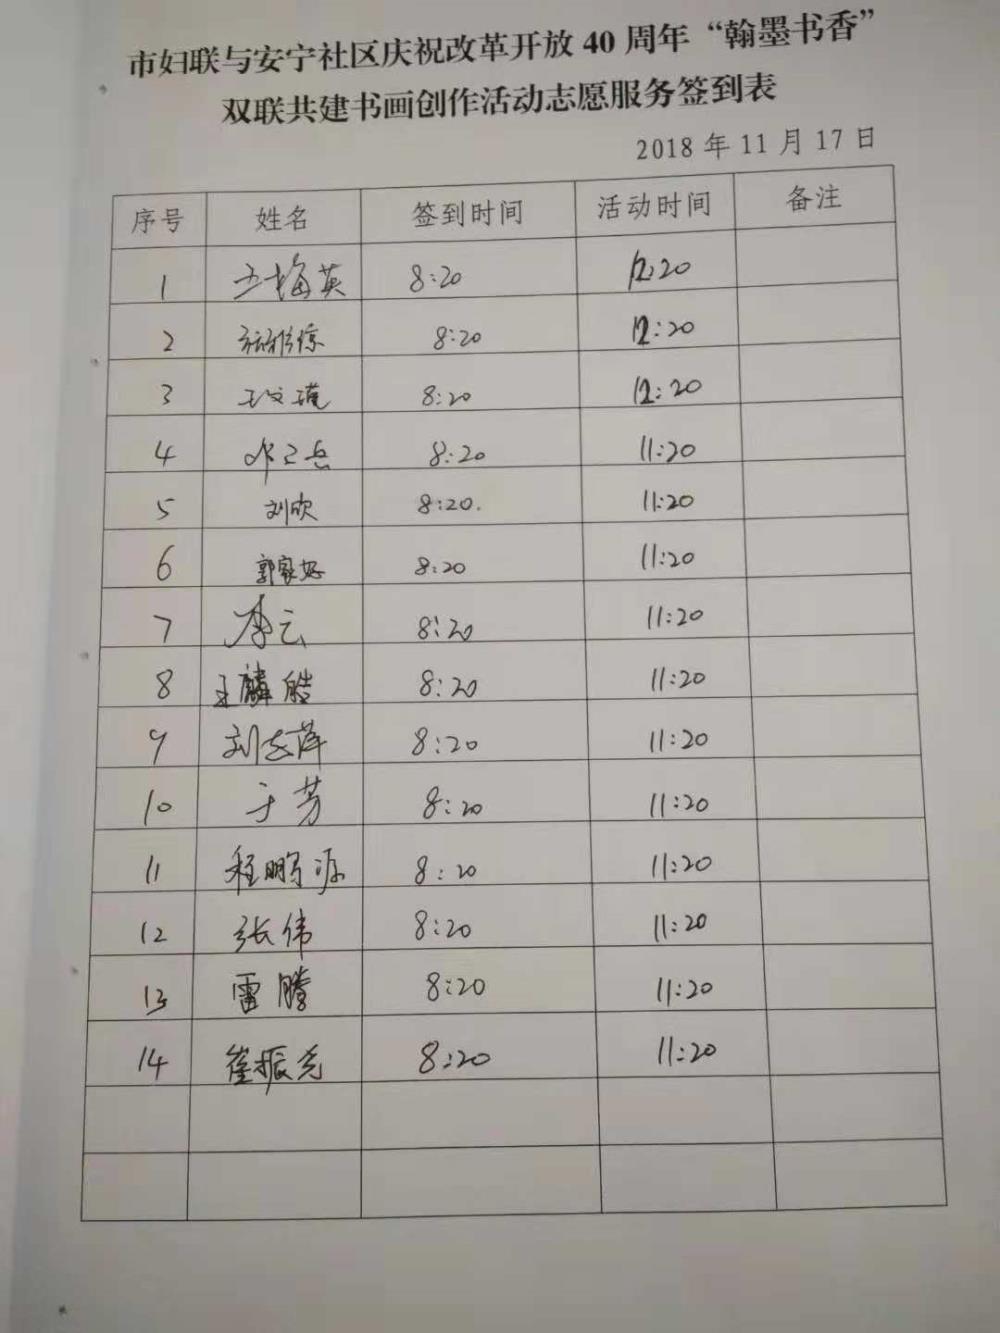 市妇联与安宁社区庆祝改革开放 40 周年“翰墨书香”
双联共建书画创作活动志愿服务签到表
2018 年 11 月 17 日
序号 姓名 签到时间 活动时间 备注
1 王梅英 8:20 12:20
2 8:20 12:20
3 王文瑾 8:20 12:20
4 8:20 11:20
5 刘欣 8:20. 11:20
6 郭家好 8:20 11:20
7 李云 8:20 11:20
8 王麟皓 8:20 11:20
9 刘志萍 8:20 11:20
10 于芳 8:20 11:20
11 程鹏源 8:20 11:20
12 张伟 8:20 11:20
13 雷腾 8:20 11:20
14 崔振光 8:20 11:20